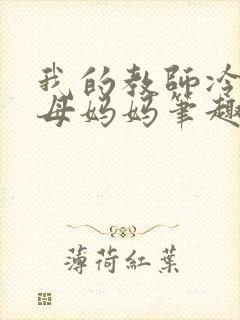 我的教師冷
母媽媽筆趣
薄荷紅葉